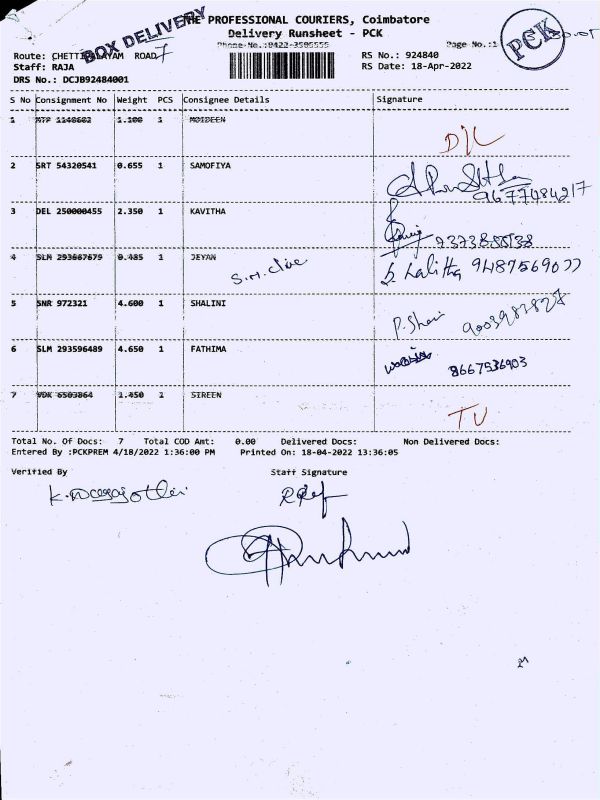 BOX DELIVERY
THE PROFESSIONAL COURIERS, Coimbatore
Delivery Runsheet - PCK
Phone No.:0422-3505555
Page No.:1
PCK
Route: CHETTIPALAYAM ROAD 7
RS No.: 924840
Staff: RAJA
RS Date: 18-Apr-2022
DRS No.: DCJB92484001
S No Consignment No Weight PCS Consignee Details Signature
1 MTP 1140602 1.100 1 MOIDEEN D/L
2 SRT 54320541 0.655 1 SAMOFIYA 9677484217
3 DEL 250000455 2.350 1 KAVITHA
4 SLM 293667679 0.485 1 JEYAN S. Lalitha 9487569077
5 SNR 972321 4.600 1 SHALINI P. 9003981827
6 SLM 293596489 4.650 1 FATHIMA 8667536903
7 VDK 6503864 1.450 1 SIREEN
Total No. Of Docs: 7 Total COD Amt: 0.00 Delivered Docs: Non Delivered Docs:
Entered By :PCKPREM 4/18/2022 1:36:00 PM Printed On: 18-04-2022 13:36:05
Verified By Staff Signature